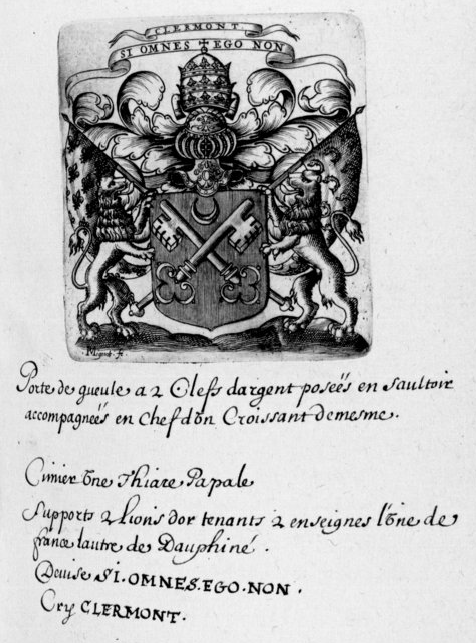 CLERMONT.
SI OMNES EGO NON
Mignot. fe.
Porte de gueule a 2 Clefs dargent poseës en saultoir
accompagneës en chef dvn Croissant demesme.
Cimier vne Thiare Papale
Supports 2 Lions dor tenants 2 enseignes l'vne de
france lautre de Dauphiné.
Deuise SI.OMNES.EGO.NON.
Cry CLERMONT.